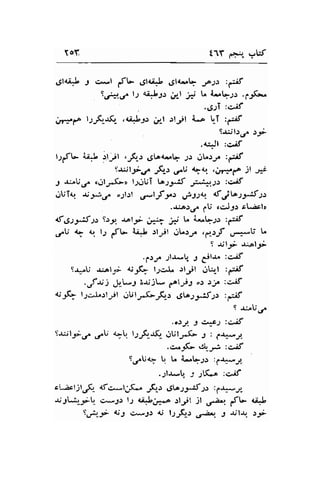 کتاب پنجم ۴۶۳ ۲۵۳
گفتم: درهر جامعه‌ای طبقه‌ای حاکم است و طبقه‌ای
محکوم. درجامعهٔ ما نیز این دوطبقه را می‌بینی؟
گفت: آری.
گفتم: آیا همهٔ افراد این دوطبقه، یکدیگررا هم‌میهن
خود می‌دانند؟
گفت: البته.
گفتم: مردمان در جامعه‌های دیگر، افراد طبقهٔ حاکم‌را
غیر از هم‌میهن، به‌چه نامی دیگر می‌خوانند؟
گفت: دربیشتر کشورها آنان‌را «حکمران» می‌نامند و
درکشورهائی‌که به‌روش دموکراسی اداره می‌شوند به‌آنان
«اعضاء دولت» نام می‌دهند.
گفتم: درجامعهٔ ما نیز چنین خواهد بود؟ درکشوری‌که
ما تأسیس کردیم، مردمان افراد طبقهٔ حاکم را به چه نامی
خواهند خواند؟
گفت: مدافع و پاسدار مردم.
گفتم: اینان افراد ملت‌را چگونه خواهند نامید؟
گفت: مزد ده وفراهم سازندهٔ وسایل زندگی.
گفتم: درکشورهای دیگرحکمرانان افرادملت‌را چگونه
می‌نامند؟
گفت: رعیت و برده.
پرسیدم: و حکمرانان یکدیگررا باچه نامی می‌خوانند؟
گفت: شریک حکومت.
پرسیدم: در جامعهٔ ما با چه‌نامی؟
گفت: همکار و پاسدار.
پرسیدم: درکشورهای دیگر ممکن‌است‌که یکی‌ازاعضاء
طبقه حاکم بعضی از افراد همین‌طبقه‌را دوست یاخویشاوند
خود بداند و بعضی دیگررا نه دوست ونه خویش؟